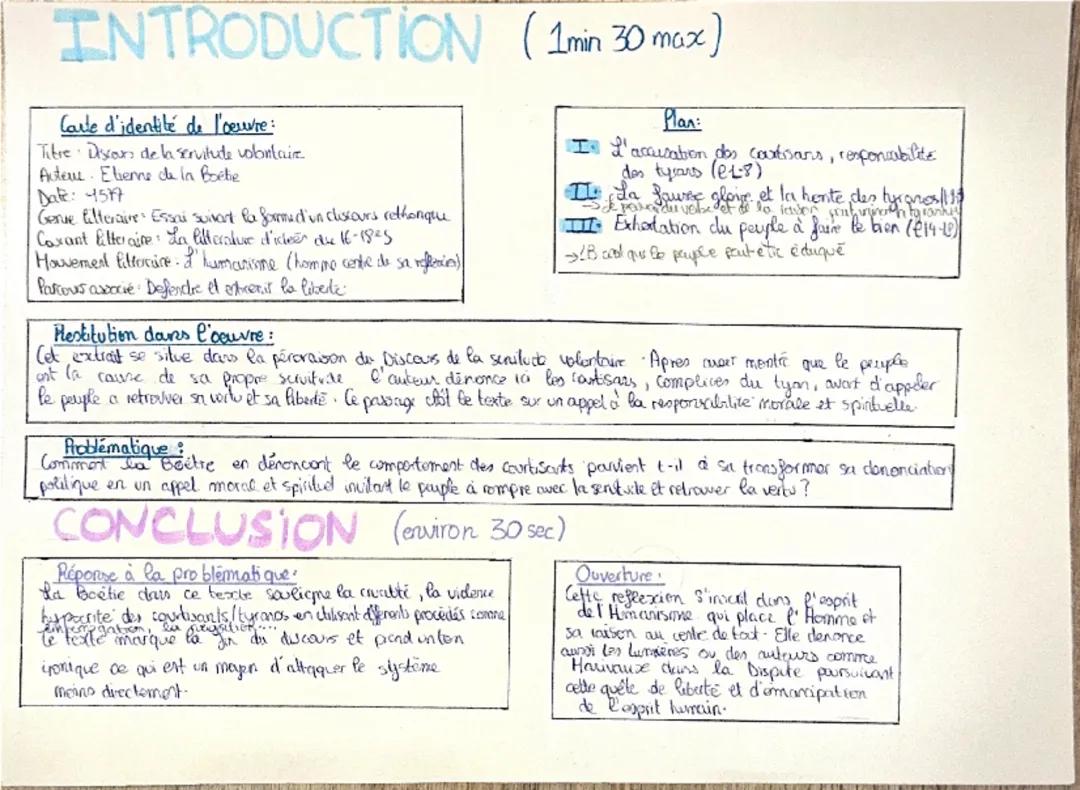 INTRODUCTION (1min 30 max)
Carte d'identité de l'oeuvre:
Titre: Discours de la servitude volontaire
Auteur: Etienne de la Boétie
Date: 1577
Genre littéraire: Essai suivant la forme d'un discours rethorique
Courant littéraire: La littérature d'idées du 16-18es
Mouvement littéraire: L'humanisme (homme centre de sa reflexion)
Parcours associé: Défendre et entretenir la liberté
Plan:
I. L'accusation des courtisans, responsabilité
des tyrans (l1-8)
II. La fausse gloire et la honte des tyrans
→ le pouvoir du verbe et de la raison
III. Exhortation du peuple à faire le bien (l14-18)
→LB croit que le peuple peut être éduqué
Restitution dans l'oeuvre:
Cet extrait se situe dans la péroraison du Discours de la servitude volontaire. Apres avoir montré que le peuple
est la cause de sa propre servitude l'auteur dénonce ici les courtisans, complices du tyran, avant d'appeler
le peuple a retrouver sa vertu et sa liberté. Ce passage clôt le texte sur un appel à la responsabilité morale et spirituelle.
Problématique:
Comment La Boétie en dénoncant le comportement des courtisants parvient t-il à sa transformer sa dénonciation
politique en un appel moral et spirituel invitant le peuple à rompre avec la servitude et retrouver la vertu?
CONCLUSION (environ 30 sec)
Réponse à la problématique:
La Boétie dans ce texte souligne la cruauté, la violence
hypocrite des courtisants/tyrans en utilisant différents procédés comme
Le texte marque la fin du discours et prend un ton
ironique ce qui est un moyen d'attaquer le système
moins directement.
Ouverture:
Cette reflexion s'inscrit dans l'esprit
de l'Humanisme qui place l'Homme et
sa raison au centre de tout. Elle denonce
aussi les Lumières ou des auteurs comme
Marivaux dans la Dispute poursuivant
cette quête de liberté et d'émancipation
de l'esprit humain.